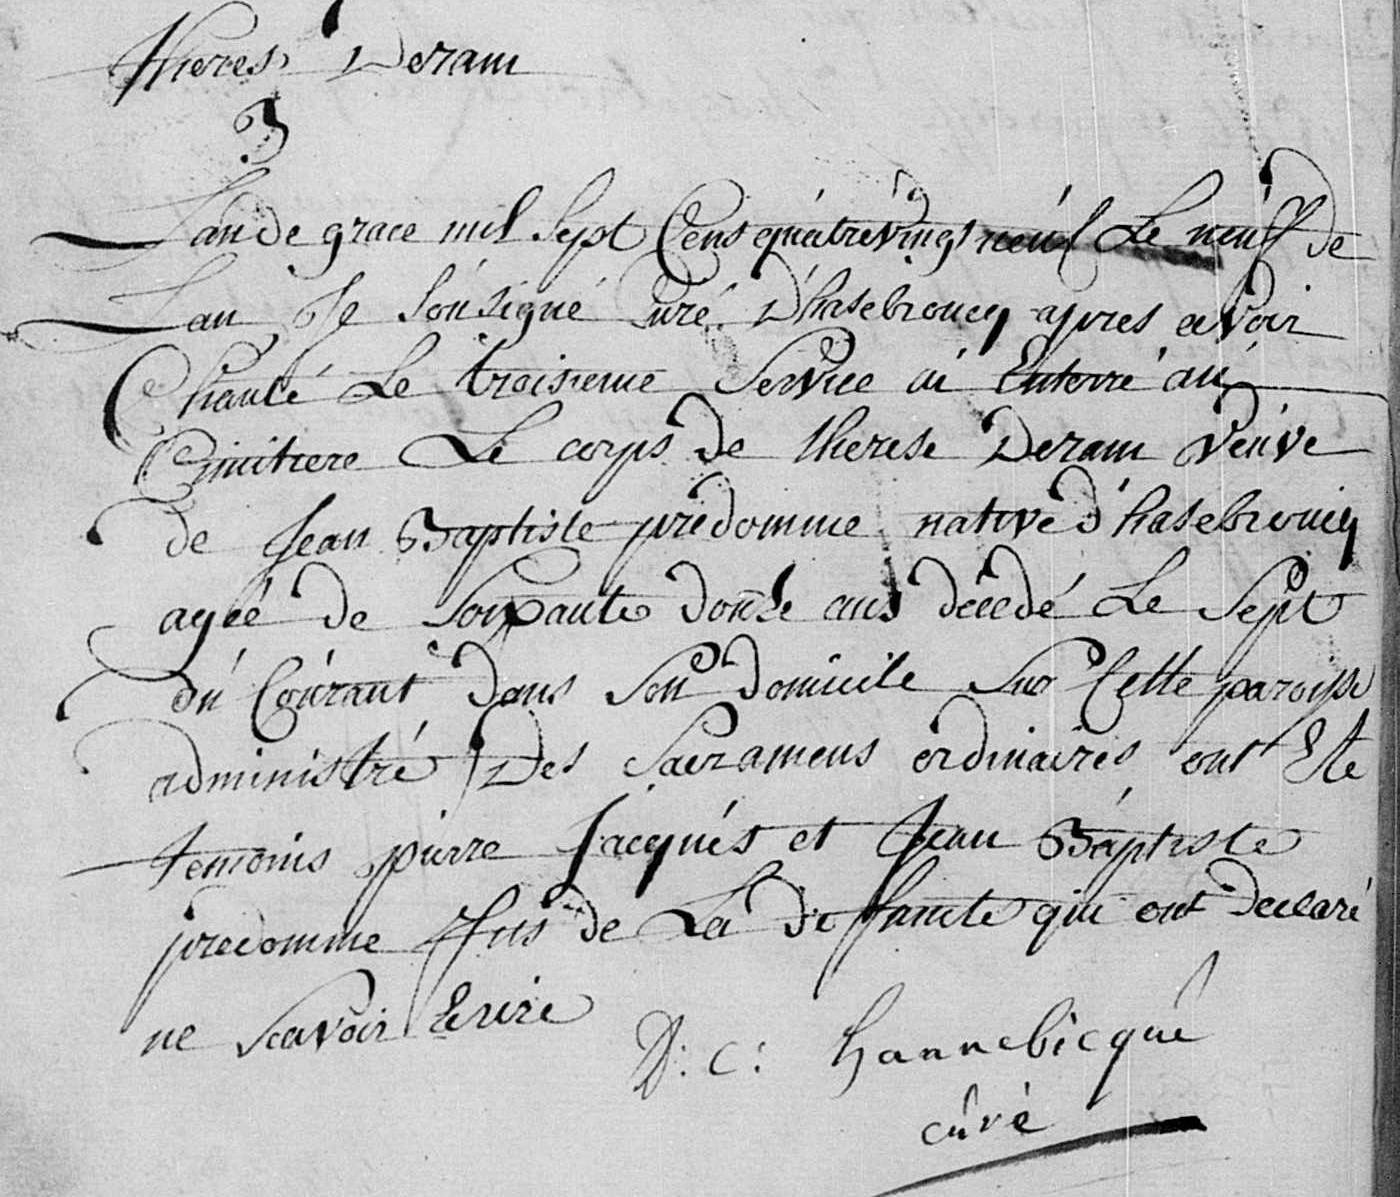 Theres Deram
3
Lan de grace mil Sept Cens quatrevings neuf Le neuf de
Lan Je sousigné Curé D'hasebroucq apres avoir
Chanté Le troisieme Service ai Enterré au
Cimitiere Le corps de therese Deram veuve
de Jean Baptiste predomme native d'hasebroucq
agée de Soixante douse ans decedé Le Sept
du Courant dans Son domicile Sur Cette paroisse
administré Des Sacramens ordinaires ont Eté
temoins pierre Jacques et Jean Baptiste
predomme Fils de La defunte qui ont declaré
ne scavoir Ecrire
D: C: hannebicque
curé